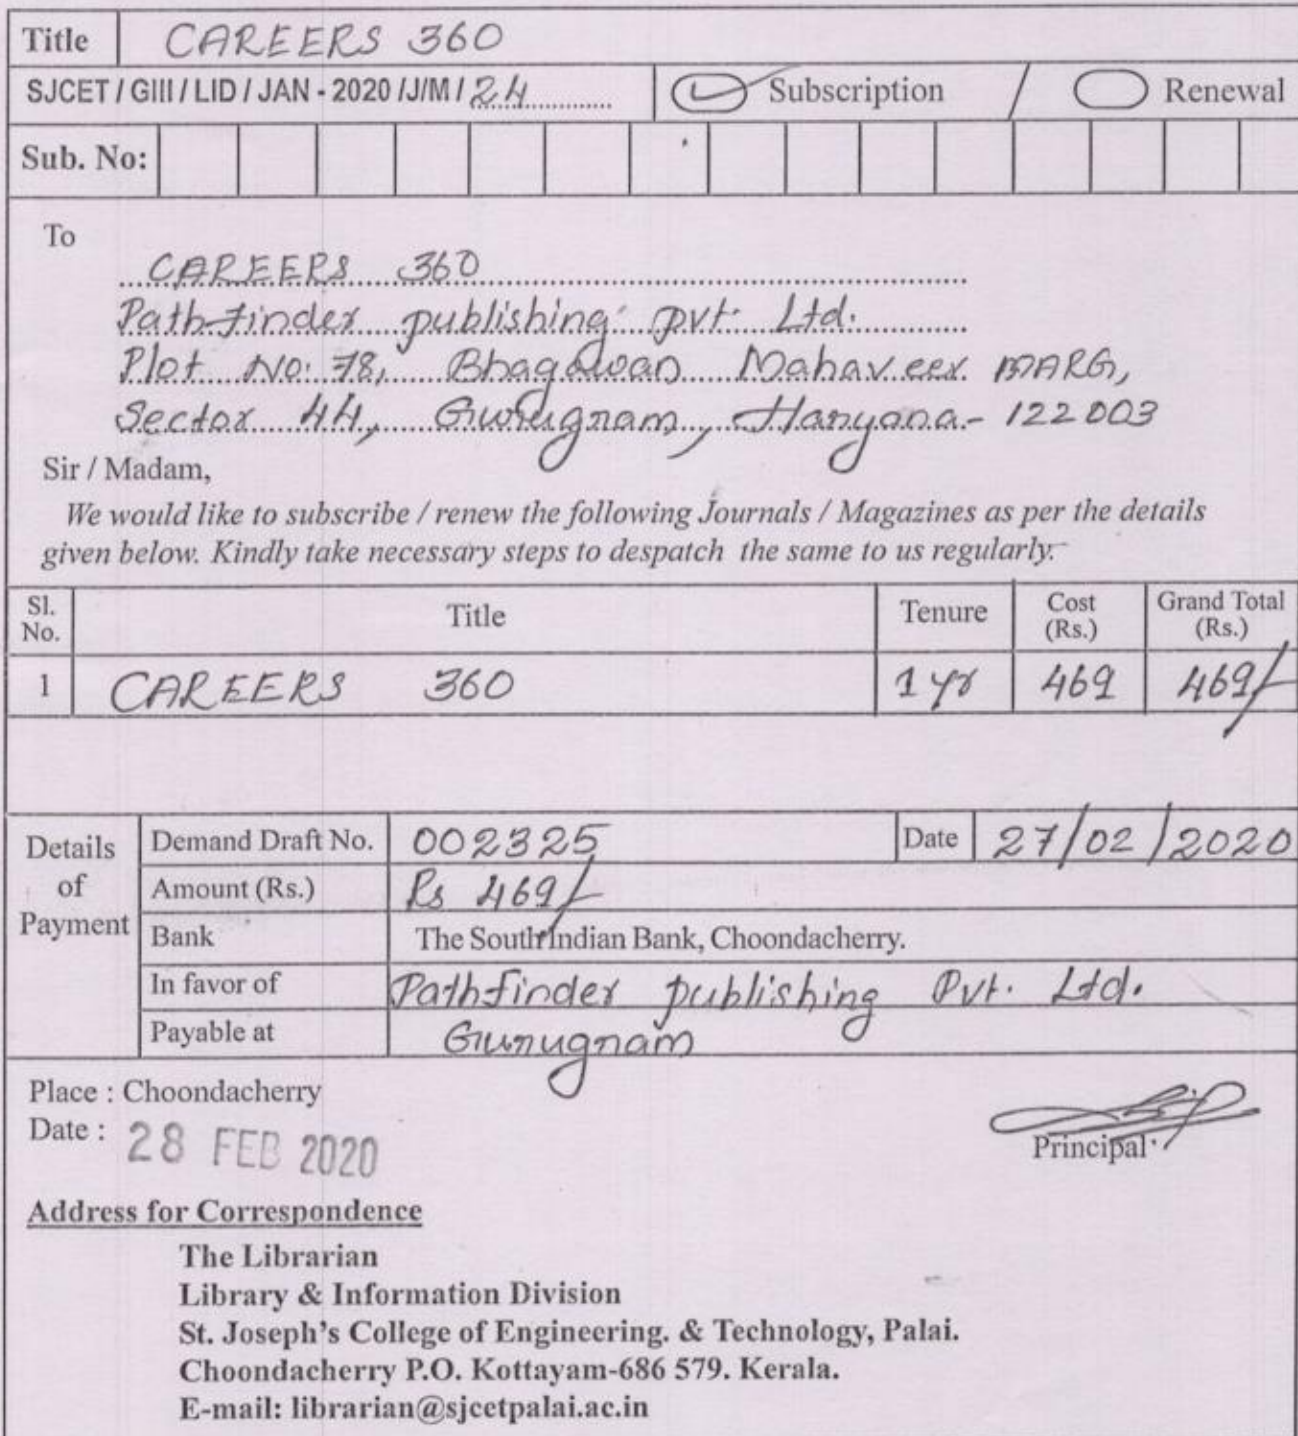 Title CAREERS 360
SJCET / GIII / LID / JAN - 2020 /J/M / 24 Subscription / Renewal
Sub. No:
To
CAREERS 360
Pathfinder publishing pvt. Ltd.
Plot No: 78, Bhagawan Mahaveer MARG,
Sector 44, Gurugnam, Haryana - 122003
Sir / Madam,
We would like to subscribe / renew the following Journals / Magazines as per the details
given below. Kindly take necessary steps to despatch the same to us regularly.
Sl. No. Title Tenure Cost (Rs.) Grand Total (Rs.)
1 CAREERS 360 1 yr 469 469/-
Details of Payment
Demand Draft No. 002325 Date 27/02/2020
Amount (Rs.) Rs 469/-
Bank The South Indian Bank, Choondacherry.
In favor of Pathfinder publishing Pvt. Ltd.
Payable at Gurugnam
Place : Choondacherry
Date : 28 FEB 2020
Principal
Address for Correspondence
The Librarian
Library & Information Division
St. Joseph's College of Engineering. & Technology, Palai.
Choondacherry P.O. Kottayam-686 579. Kerala.
E-mail: librarian@sjcetpalai.ac.in